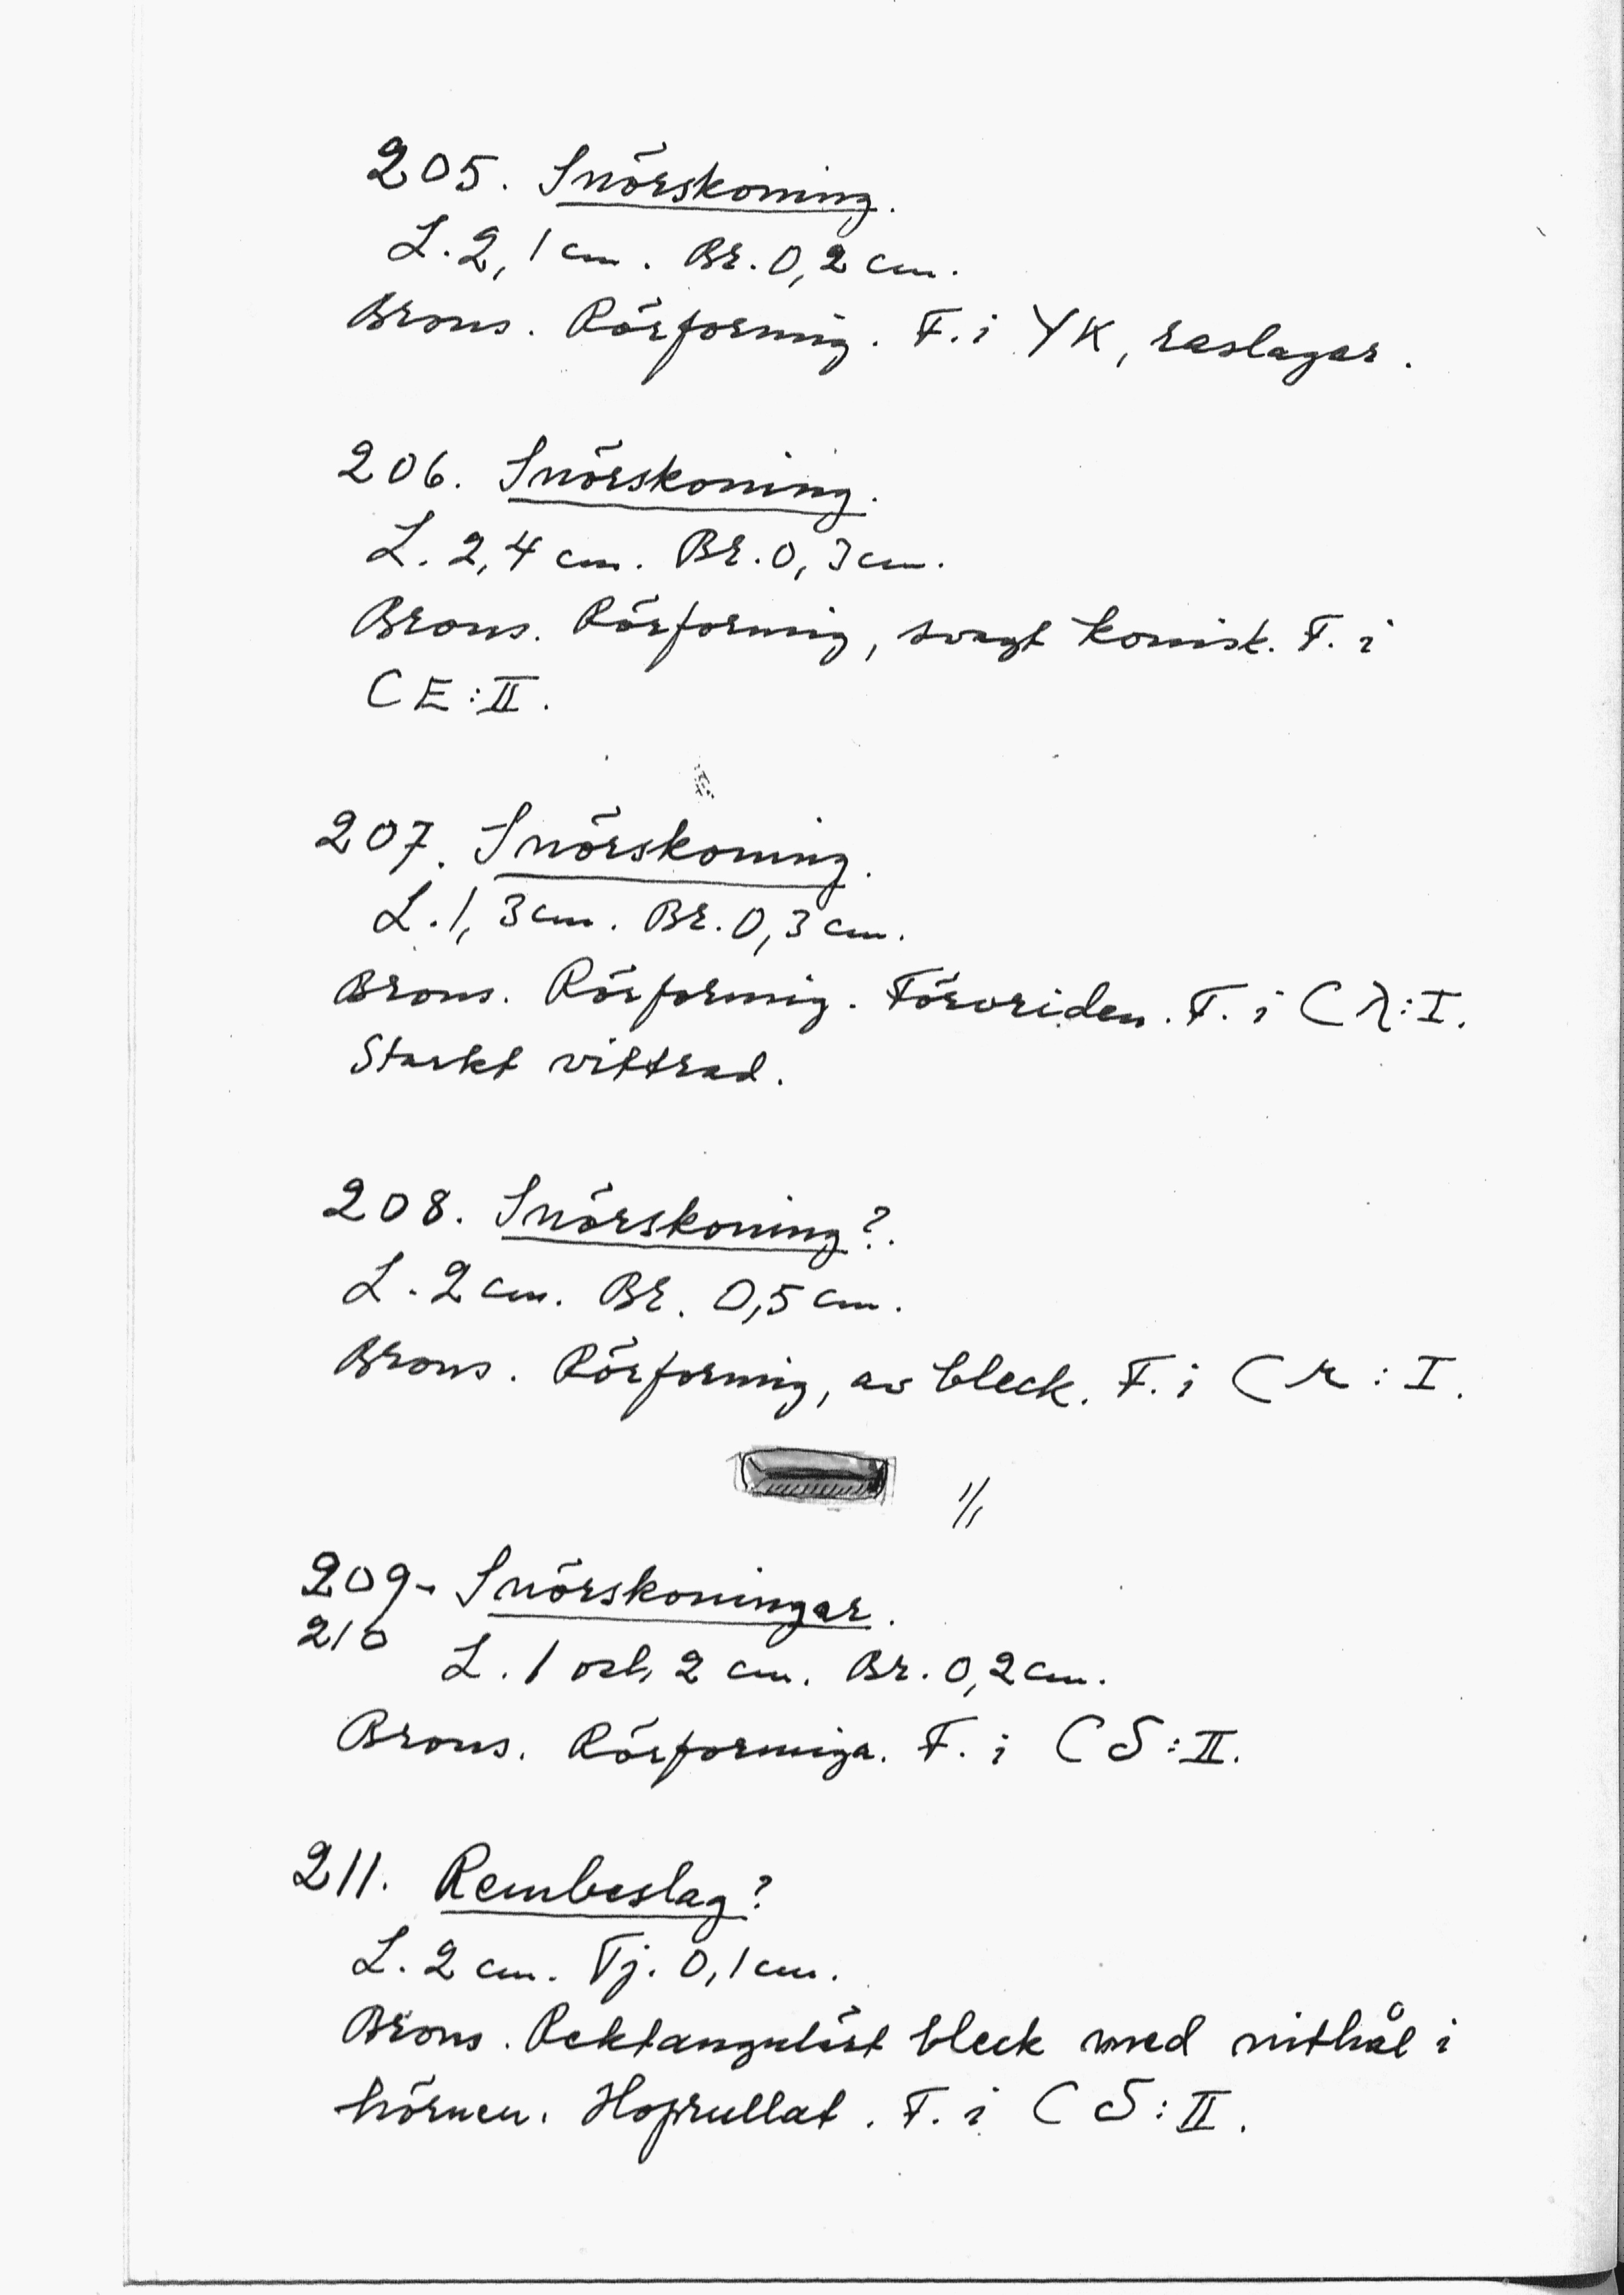 205. Snörskoning.
L. 2,1 cm. Br. 0,2 cm.
Brons. Rörformig. F. i YK, raslagar.
206. Snörskoning.
L. 2,4 cm. Br. 0,3 cm.
Brons. Rörformig, svagt konisk. F. i
CE:II.
207. Snörskoning.
L. 1,3 cm. Br. 0,3 cm.
Brons. Rörformig. Förvriden. F. i C :I.
Starkt vittrad.
208. Snörskoning?.
L. 2 cm. Br. 0,5 cm.
Brons. Rörformig, av bleck. F. i C : I.
1/1
209- Snörskoningar.
210
L. 1 och 2 cm. Br. 0,2 cm.
Brons. Rörformiga. F. i CS:II.
211. Rembeslag?
L. 2 cm. Tj. 0,1 cm.
Brons. Rektangulärt bleck med nithål i
hörnen. Hoprullat. F. i CS:II.